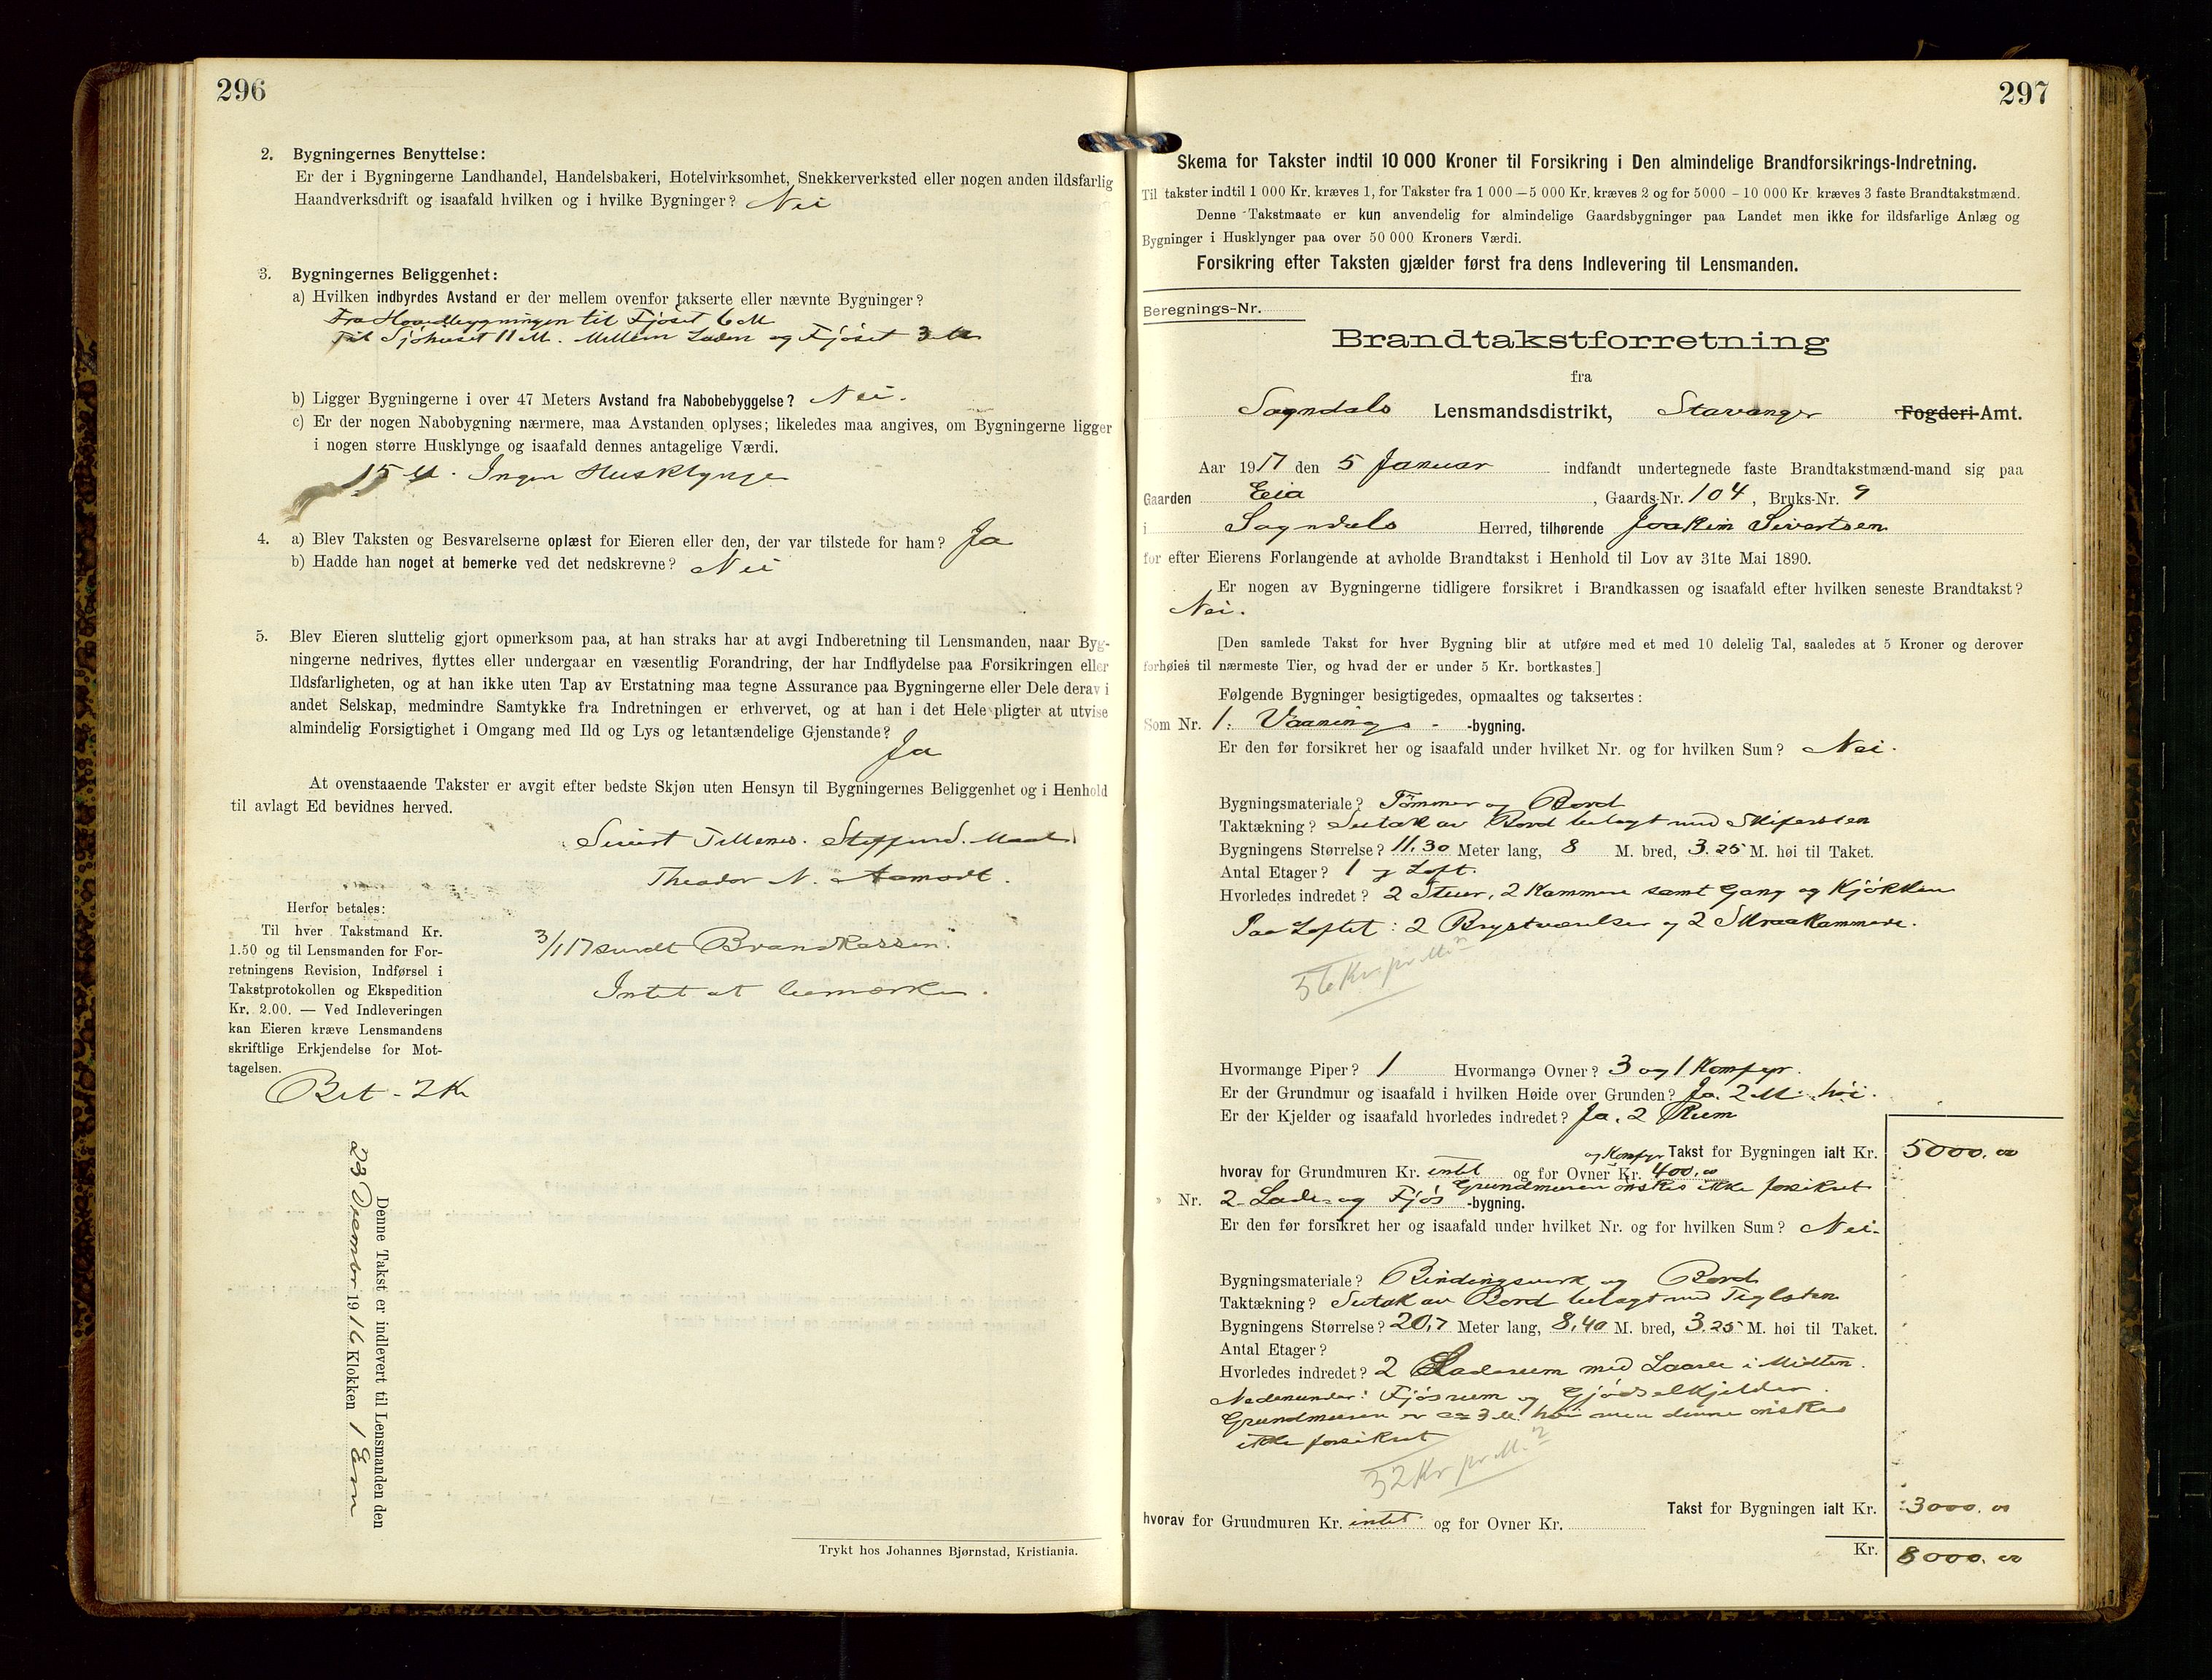 296
2. Bygningernes Benyttelse:
Er der i Bygningerne Landhandel, Handelsbakeri, Hotelvirksomhet, Snekkerverksted eller nogen anden ildsfarlig
Haandverksdrift og isaafald hvilken og i hvilke Bygninger? Nei
3. Bygningernes Beliggenhet:
a) Hvilken indbyrdes Avstand er der mellem ovenfor takserte eller nævnte Bygninger?
Fra Hovedbygningen til Fjøset 6 M
Til Sjøhuset 11 M. Mellem Laden og Fjøset 3 M
b) Ligger Bygningerne i over 47 Meters Avstand fra Nabobebyggelse? Nei.
c) Er der nogen Nabobygning nærmere, maa Avstanden oplyses; likeledes maa angives, om Bygningerne ligger
i nogen større Husklynge og isaafald dennes antagelige Værdi.
15 M. Ingen Husklynge
4. a) Blev Taksten og Besvarelserne oplæst for Eieren eller den, der var tilstede for ham? Ja
b) Hadde han noget at bemerke ved det nedskrevne? Nei
5. Blev Eieren sluttelig gjort opmerksom paa, at han straks har at avgi Indberetning til Lensmanden, naar Byg-
ningerne nedrives, flyttes eller undergaar en væsentlig Forandring, der har Indflydelse paa Forsikringen eller
Ildsfarligheten, og at han ikke uten Tap av Erstatning maa tegne Assurance paa Bygningerne eller Dele derav i
andet Selskap, medmindre Samtykke fra Indretningen er erhvervet, og at han i det Hele pligter at utvise
almindelig Forsigtighet i Omgang med Ild og Lys og letantændelige Gjenstande?
Ja
At ovenstaaende Takster er avgit efter bedste Skjøn uten Hensyn til Bygningernes Beliggenhet og i Henhold
til avlagt Ed bevidnes herved.
Sivert Tellenes. Steffen S.
Theodor N. Aamodt.
Herfor betales:
Til hver Takstmand Kr.
1.50 og til Lensmanden for For-
retningens Revision, Indførsel i
Takstprotokollen og Ekspedition
Kr. 2.00. — Ved Indleveringen
kan Eieren kræve Lensmandens
skriftlige Erkjendelse for Mot-
tagelsen.
3/1 17 sendt Brandkassen.
Intet at bemærke.
Bet - 2 Kr
Denne Takst er indlevert til Lensmanden den
23 Dcember 1916 Klokken 1 Em
Trykt hos Johannes Bjørnstad, Kristiania.
297
Skema for Takster indtil 10 000 Kroner til Forsikring i Den almindelige Brandforsikrings-Indretning.
Til takster indtil 1 000 Kr. kræves 1, for Takster fra 1 000 — 5 000 Kr. kræves 2 og for 5000 - 10 000 Kr kræves 3 faste Brandtakstmænd.
Denne Takstmaate er kun anvendelig for almindelige Gaardsbygninger paa Landet men ikke for ildsfarlige Anlæg og
Bygninger i Husklynger paa over 50 000 Kroners Værdi.
Forsikring efter Taksten gjælder først fra dens Indlevering til Lensmanden.
Beregnings-Nr.
Brandtakstforretning
fra
Sogndals Lensmandsdistrikt, Stavanger Fogderi-Amt.
Aar 1917 den 5 Januar indfandt undertegnede faste Brandtakstmænd-mand sig paa
Gaarden Eeia, Gaards-Nr. 104, Bruks-Nr. 9
i Sogndals Herred, tilhørende Joakim Sivertsen
for efter Eierens Forlangende at avholde Brandtakst i Henhold til Lov av 31te Mai 1890.
Er nogen av Bygningerne tidligere forsikret i Brandkassen og isaafald efter hvilken seneste Brandtakst?
Nei.
[Den samlede Takst for hver Bygning blir at utføre med et med 10 delelig Tal, saaledes at 5 Kroner og derover
forhøies til nærmeste Tier, og hvad der er under 5 Kr. bortkastes.]
Følgende Bygninger besigtigedes, opmaaltes og taksertes:
Som Nr. 1. Vaanings - -bygning.
Er den før forsikret her og isaafald under hvilket Nr. og for hvilken Sum? Nei.
Bygningsmateriale? Tømmer og Bord
Taktækning? Sutak av Bord belagt med Skifersten
Bygningens Størrelse? 11.30 Meter lang, 8 M. bred, 3.25 M. høi til Taket.
Antal Etager? 1 og Loft.
Hvorledes indredet? 2 Stuer, 2 Kammere samt Gang og Kjøkken
Paa Loftet: 2 Brystværelser og 2 Skraakammere.
56 Kr. pr M.2
Hvormange Piper? 1 Hvormange Ovner? 3 og 1 Komfyr.
Er der Grundmur og isaafald i hvilken Høide over Grunden? Ja. 2 M. høi.
Er der Kjelder og isaafald hvorledes indredet? Ja. 2 Rum
Takst for Bygningen ialt Kr. 5000.00
og Komfyr
hvorav for Grundmuren Kr. intet og for Ovner Kr. 400.00
Grundmuren ønskes ikke forsikret
Nr. 2. Lade- og Fjøs -bygning.
Er den før forsikret her og isaafald under hvilket Nr. og for hvilken Sum? Nei.
Bygningsmateriale? Bindingsverk og Bord
Taktækning? Sutak av Bord belagt med Teglsten
Bygningens Størrelse? 20,7 Meter lang, 8,40 M. bred, 3.25 M. høi til Taket.
Antal Etager?
Hvorledes indredet? 2 Laderum med Laave i Midten.
Nedenunder: Fjøsrum og Gjødselkjelder.
Grundmuren er ca 3 M. høi men denne ønskes
ikke forsikret
32 Kr pr M.2
Takst for Bygningen ialt Kr. 3000.00
hvorav for Grundmuren Kr. intet og for Ovner Kr.
Kr. 8000.00